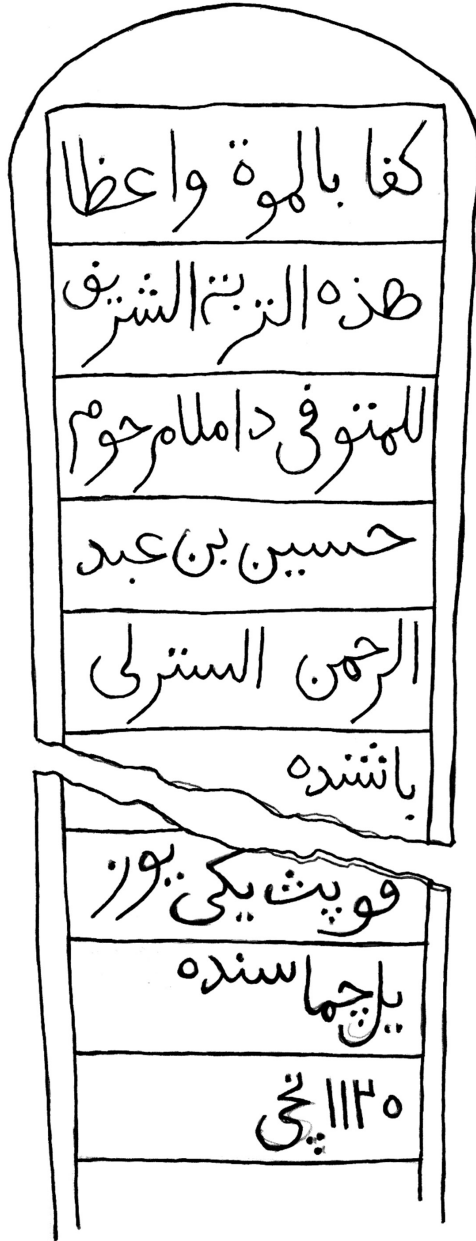 كفا بالموة واعظا
هذه التربة الشريف
للمتوفى داملا مرحوم
حسين بن عبد
الرحمن السترلى
باشنده
قوپث يكى يوز
يل چماسنده
١١٢٥ نچى